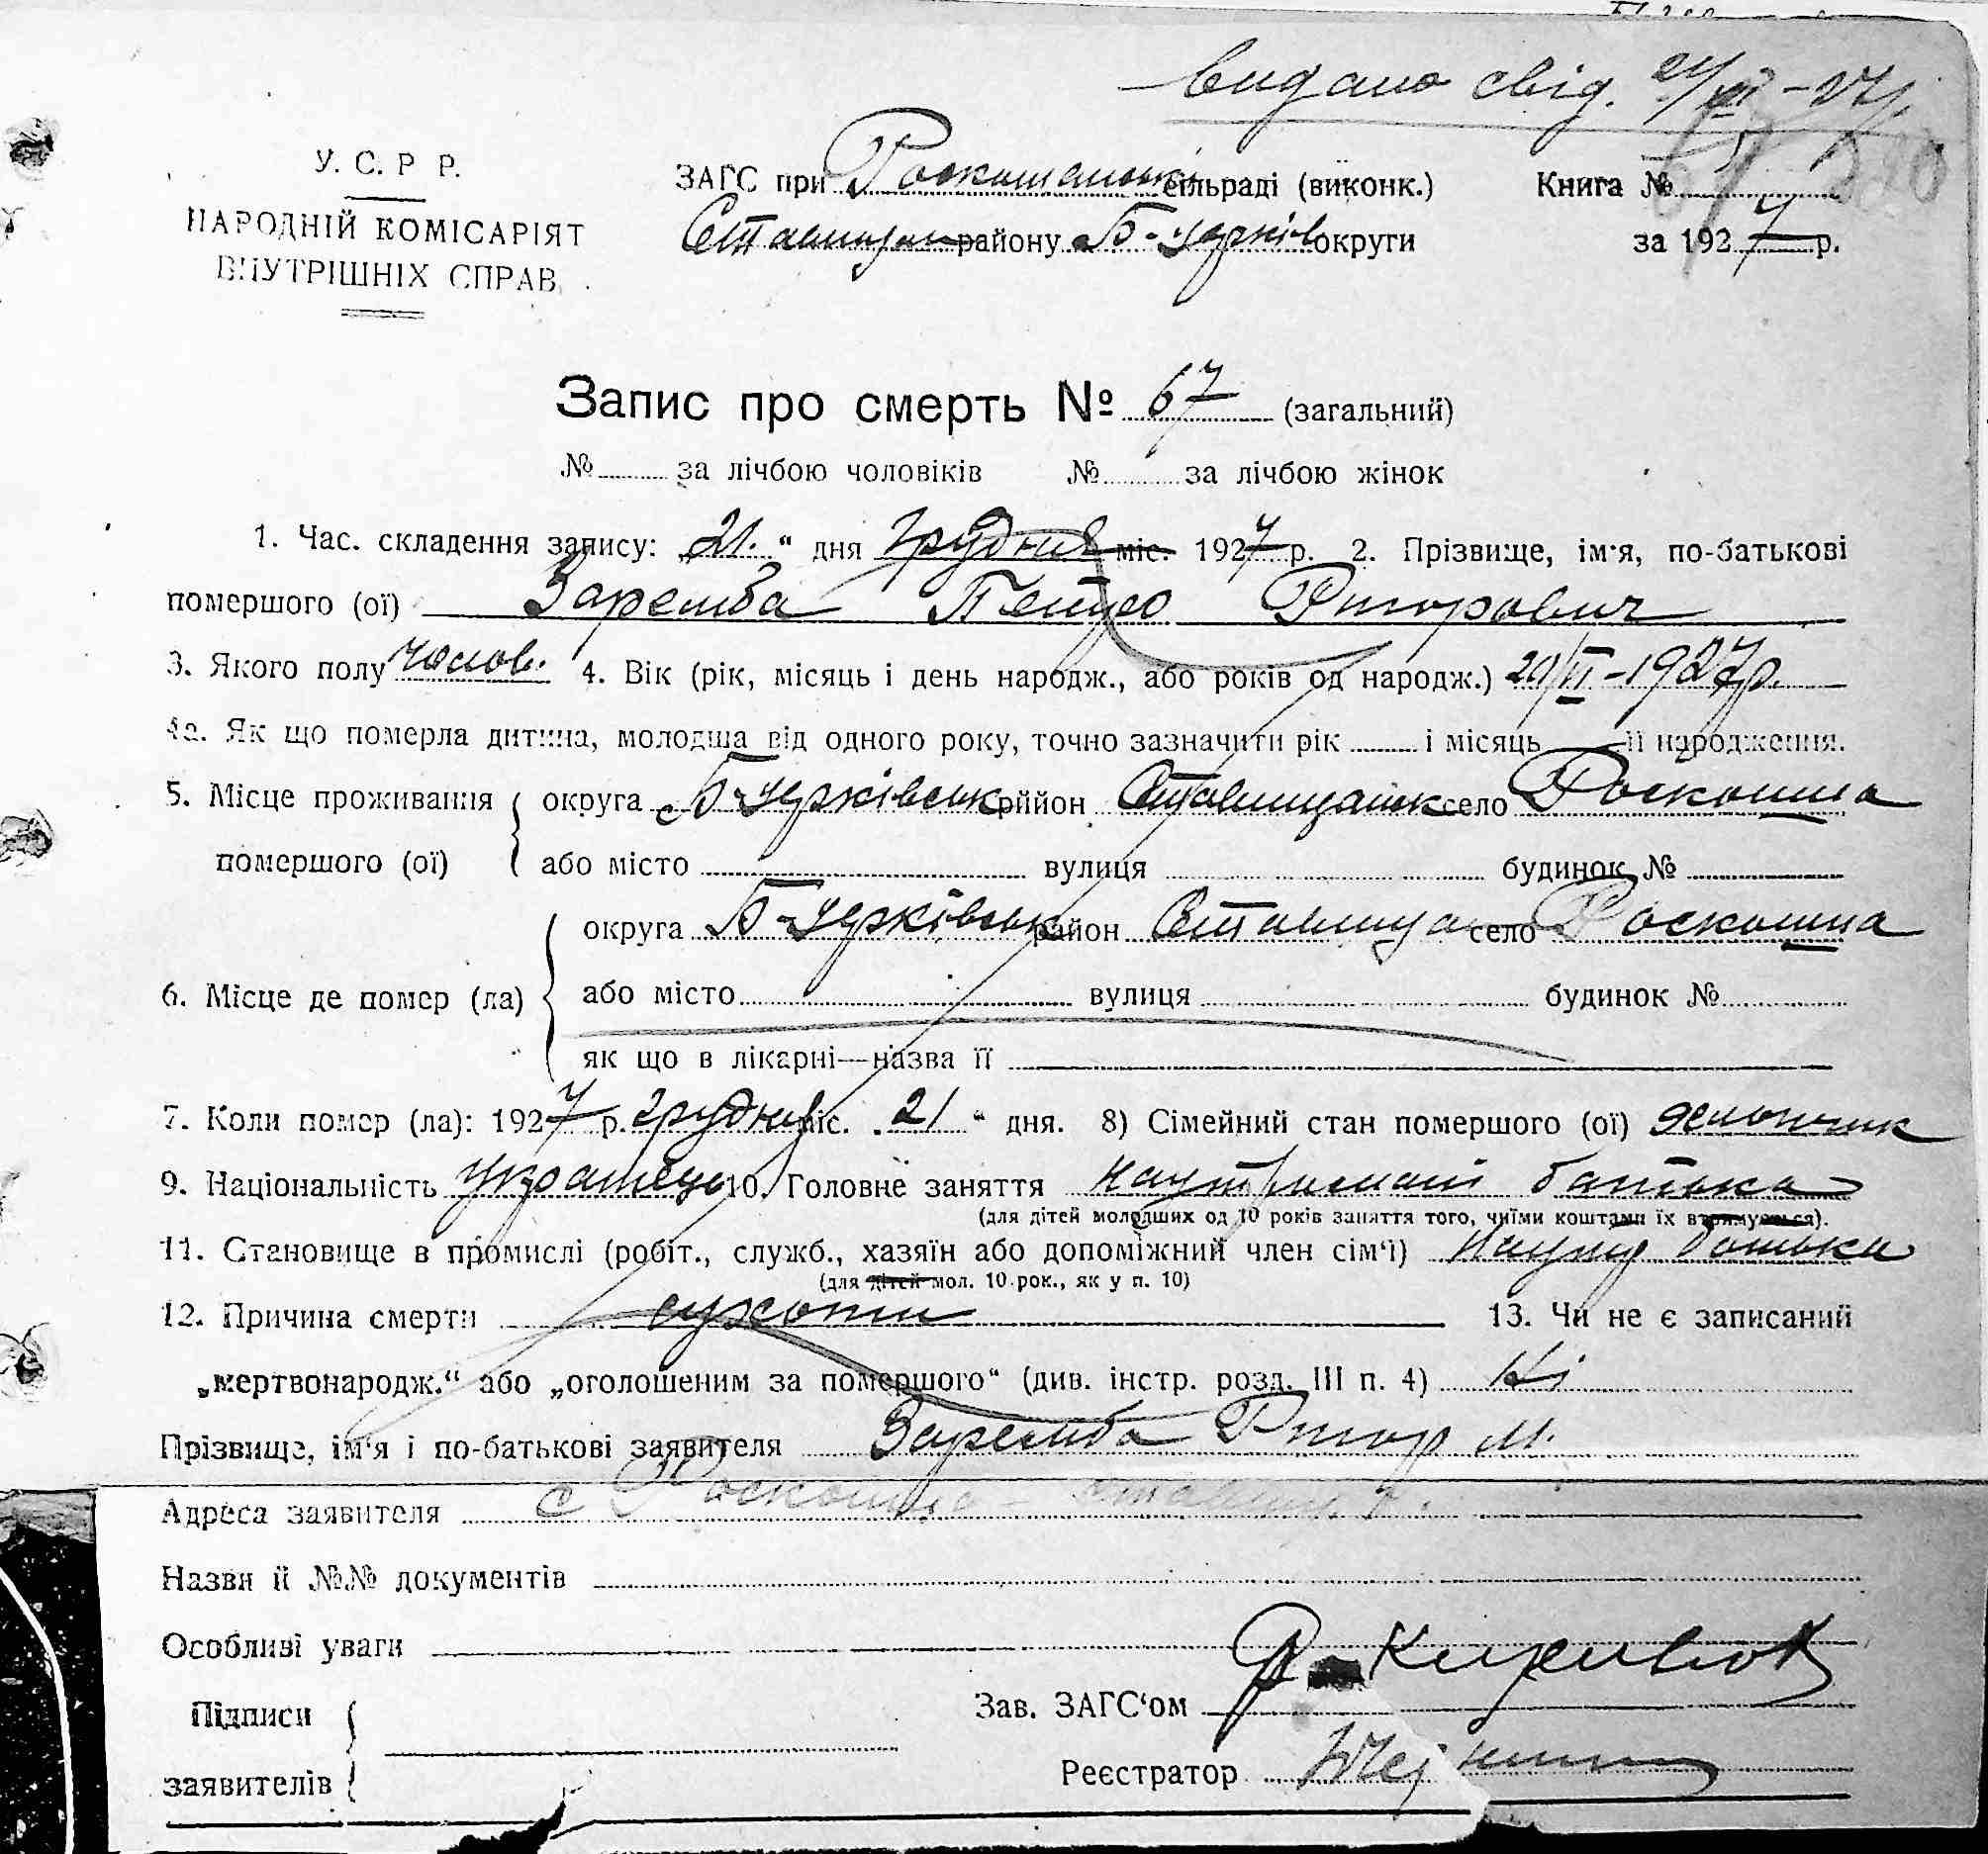 видано свід. 21/XII-27р.
У. С. Р Р.
НАРОДНІЙ КОМІСАРІЯТ
ВНУТРІШНІХ СПРАВ
ЗАГС при Роскошанські сільраді (виконк.) Книга №
Ставищан району Б-церків округи за 1927 р.
Запис про смерть № 67 (загальний)
№ за лічбою чоловіків № за лічбою жінок
1. Час. складення запису: „21.“ дня грудня міс. 1927 р. 2. Прізвище, ім'я, по-батькові
помершого (ої) Заремба Петро Григорович
3. Якого полу чолов. 4. Вік (рік, місяць і день народж., або років од народж.) 20/VI-1927р.
4а. Як що померла дитина, молодша від одного року, точно зазначити рік і місяць її народження.
5. Місце проживання округа Б-церківськ рййон Ставищанськ село Роскошна
помершого (ої) або місто вулиця будинок №
округа Б-церківськ район Ставища село Роскошна
6. Місце де помер (ла) або місто вулиця будинок №
як що в лікарні—назва її
7. Коли помер (ла): 1927 р. грудня міс. „21“ дня. 8) Сімейний стан помершого (ої)
9. Національність українець 10. Головне заняття на утриманні батька
(для дітей молодших од 10 років заняття того, чиїми коштами їх втримується).
11. Становище в промислі (робіт., служб., хазяїн або допоміжний член сім'ї) батька
(для дітей мол. 10 рок., як у п. 10)
12. Причина смерти сухоти 13. Чи не є записаний
„мертвонародж.“ або „оголошеним за помершого“ (див. інстр. розд. III п. 4) Ні
Прізвище, ім'я і по-батькові заявителя Заремба Григор М.
Адреса заявителя с Роскошна
Назви й №№ документів
Особливі уваги
Підписи
Зав. ЗАГС'ом
Реєстратор
заявителів